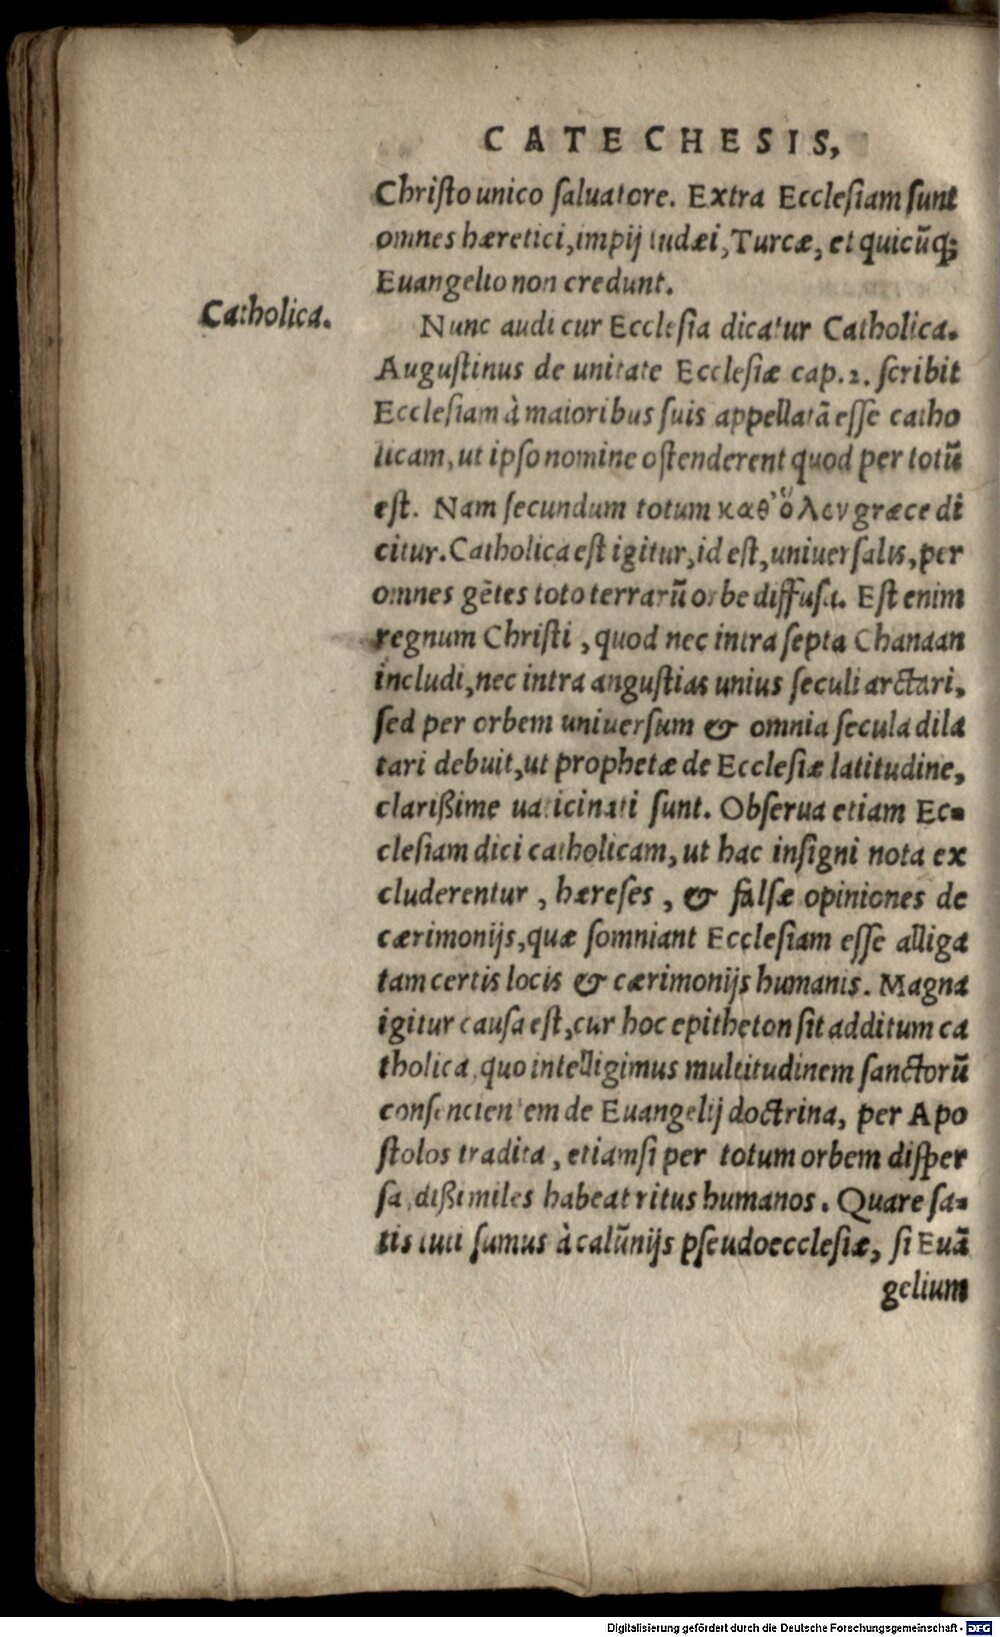 CATECHESIS,
Christo unico saluatore. Extra Ecclesiam sunt
omnes hæretici, impij Iudæi, Turcæ, et quicũq;
Euangelio non credunt.
Catholica.
Nunc audi cur Ecclesia dicatur Catholica.
Augustinus de unitate Ecclesiæ cap.2. scribit
Ecclesiam à maioribus suis appellatã esse catho
licam, ut ipso nomine ostenderent quod per totũ
est. Nam secundum totum καθ᾽ ὅλου græce di
citur. Catholica est igitur, id est, uniuersalis, per
omnes gẽtes toto terrarũ orbe diffusa. Est enim
regnum Christi, quod nec intra septa Chanaan
includi, nec intra angustias unius seculi arctari,
sed per orbem uniuersum & omnia secula dila
tari debuit, ut prophetæ de Ecclesiæ latitudine,
clarißime uaticinati sunt. Obserua etiam Ec-
clesiam dici catholicam, ut hac insigni nota ex
cluderentur, hæreses, & falsæ opiniones de
cærimonijs, quæ somniant Ecclesiam esse alliga
tam certis locis & cærimonijs humanis. Magna
igitur causa est, cur hoc epitheton sit additum ca
tholica, quo intelligimus multitudinem sanctorũ
consencientem de Euangelij doctrina, per Apo
stolos tradita, etiamsi per totum orbem disper
sa, dißimiles habeat ritus humanos. Quare sa-
tis tuti sumus à calũnijs pseudoecclesiæ, si Euã
gelium
Digitalisierung gefördert durch die Deutsche Forschungsgemeinschaft - DFG